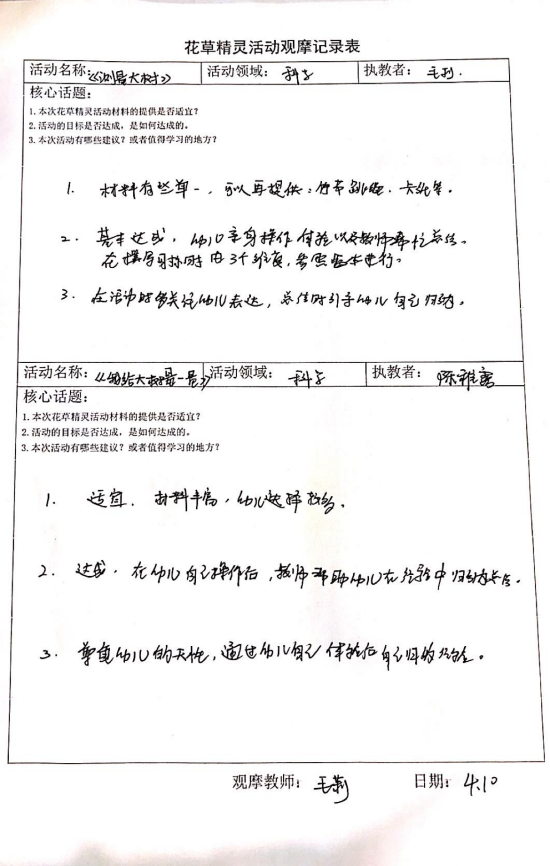 花草精灵活动观摩记录表
活动名称：《测量大树》 活动领域： 科学 执教者： 毛莉.
核心话题：
1. 本次花草精灵活动材料的提供是否适宜？
2. 活动的目标是否达成，是如何达成的。
3. 本次活动有哪些建议？或者值得学习的地方？
1. 材料有些单一，可以再提供：竹节 跳绳、卡纸等。
2. 基本达成，幼儿亲身操作体验以及教师总结。
在撰写目标时 由3个维度，参照进行。
3. 在活动时多关注幼儿表达，总结时引导幼儿自己归纳。
活动名称：《给大树量一量》 活动领域： 科学 执教者： 陈雅
核心话题：
1. 本次花草精灵活动材料的提供是否适宜？
2. 活动的目标是否达成，是如何达成的。
3. 本次活动有哪些建议？或者值得学习的地方？
1. 适宜. 材料丰富，幼儿选择较多。
2. 达成，在幼儿自己操作后，教师帮助幼儿在经验中归纳总结。
3. 尊重幼儿的天性，通过幼儿自己体验后自己归纳经验。
观摩教师： 毛莉 日期： 4.10